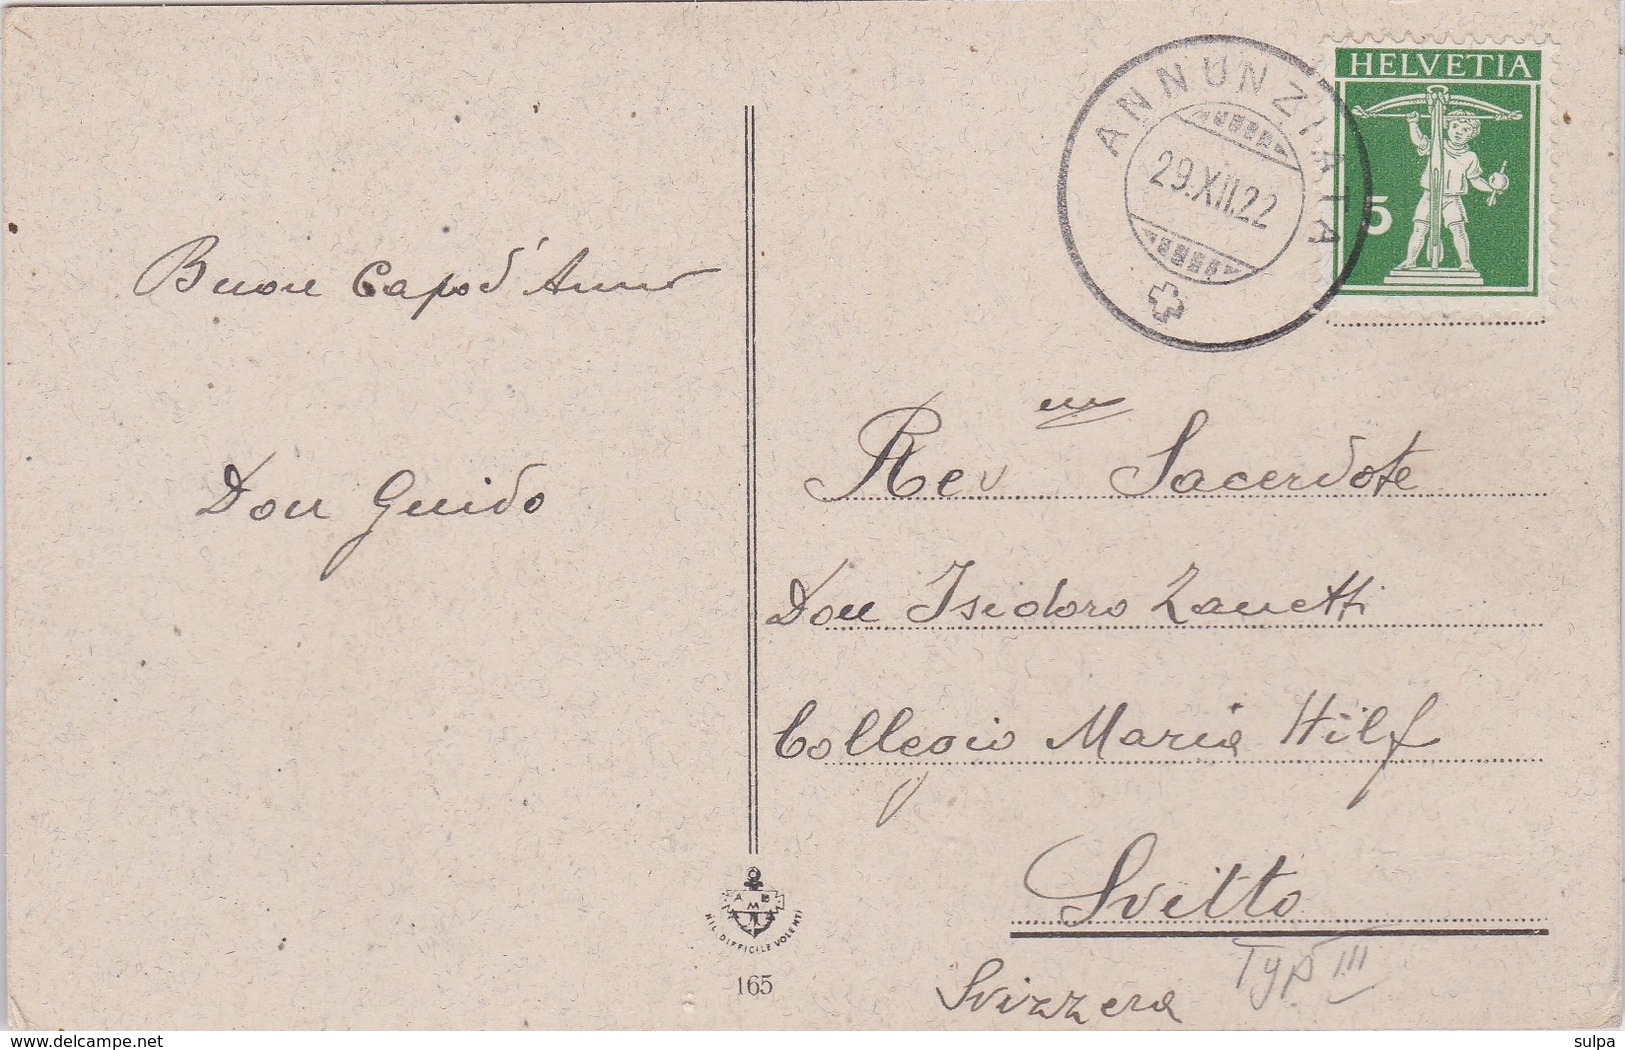 HELVETIA
5
ANNUNZIATA
29.XII.22
Buon Capod'Anno
Don Guido
Rev.m Sacerdote
Don Isidoro Zanetti
Collegio Maria Hilf
Svitto
Svizzera
Typ III
A M B
NIL DIFFICILE VOLENTI
165
www.delcampe.net
sulpa